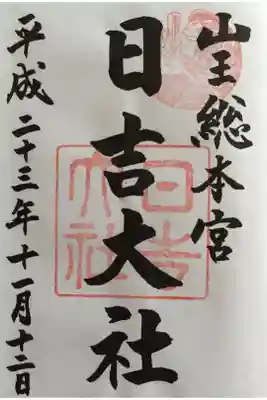 山王総本宮
日吉大社
平成二十三年十一月十二日
日吉大社